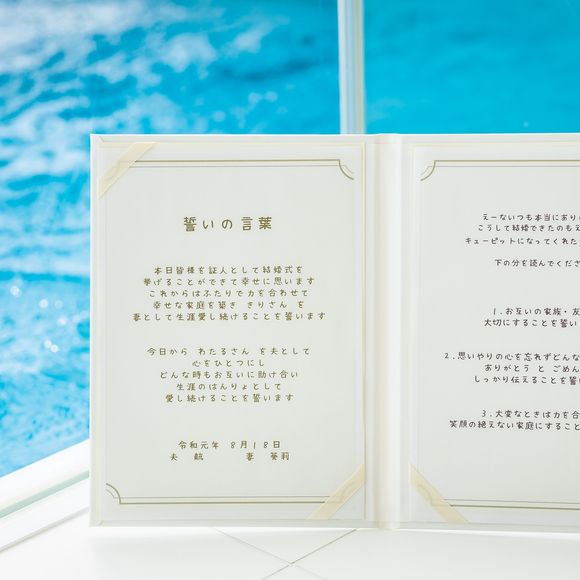 誓いの言葉
本日皆様を証人として結婚式を
挙げることができて幸せに思います
これからはふたりで力を合わせて
幸せな家庭を築き きりさん を
妻として生涯愛し続けることを誓います
今日から わたるさん を夫として
心をひとつにし
どんな時もお互いに助け合い
生涯のはんりょとして
愛し続けることを誓います
令和元年 8月18日
夫 航 妻 葵莉
えーないつも本当にあり
こうして結婚できたのもえ
キューピットになってくれた
下の分を読んでくださ
1.お互いの家族・友
大切にすることを誓い
2.思いやりの心を忘れずどんな
ありがとう と ごめん
しっかり伝えることを誓い
3.大変なときは力を合
笑顔の絶えない家庭にすること